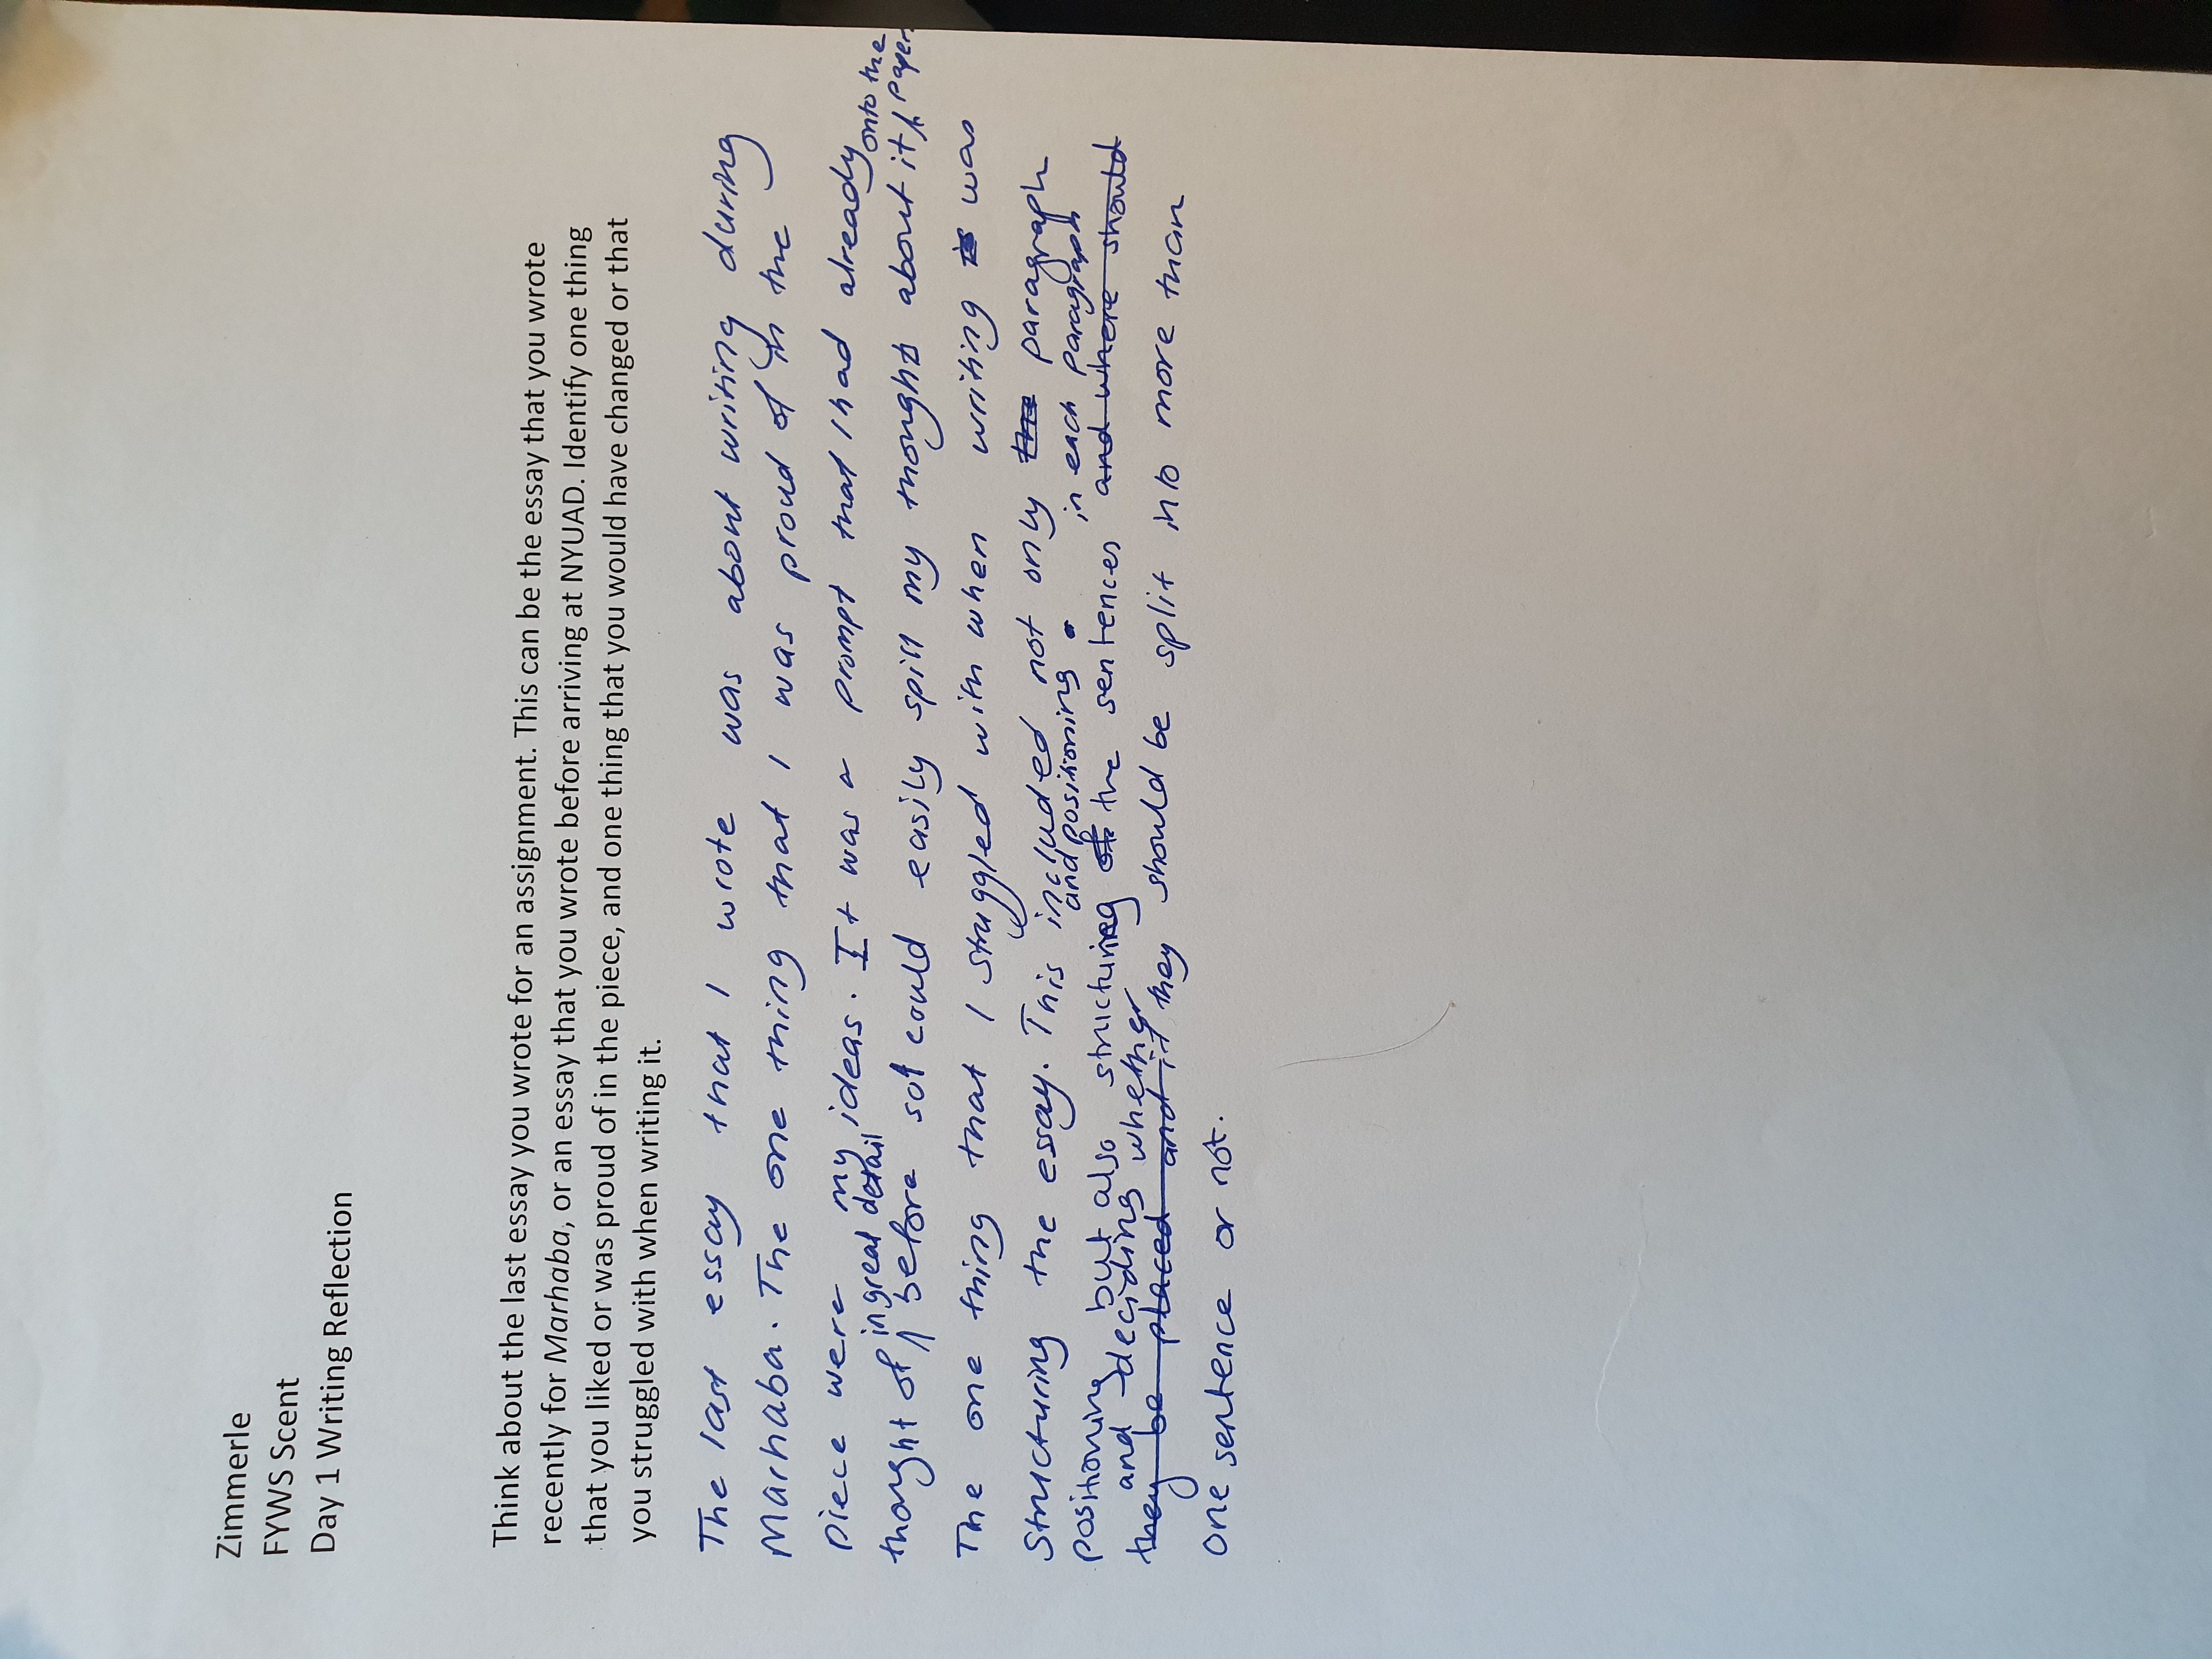 Zimmerle
FYWS Scent
Day 1 Writing Reflection
Think about the last essay you wrote for an assignment. This can be the essay that you wrote
recently for Marhaba, or an essay that you wrote before arriving at NYUAD. Identify one thing
that you liked or was proud of in the piece, and one thing that you would have changed or that
you struggled with when writing it.
The last essay that I wrote was about writing during
Marhaba. The one thing that I was proud of in the
piece were my ideas. It was a prompt that I had already
in great detail onto the
thought of before so I could easily spill my thoughts about it paper.
The one thing that I struggled with when writing is was
structuring the essay. This included not only the paragraph
and positioning in each paragraph
positioning, but also structuring of the sentences and where should
and deciding whether
they be placed and if they should be split into more than
one sentence or not.